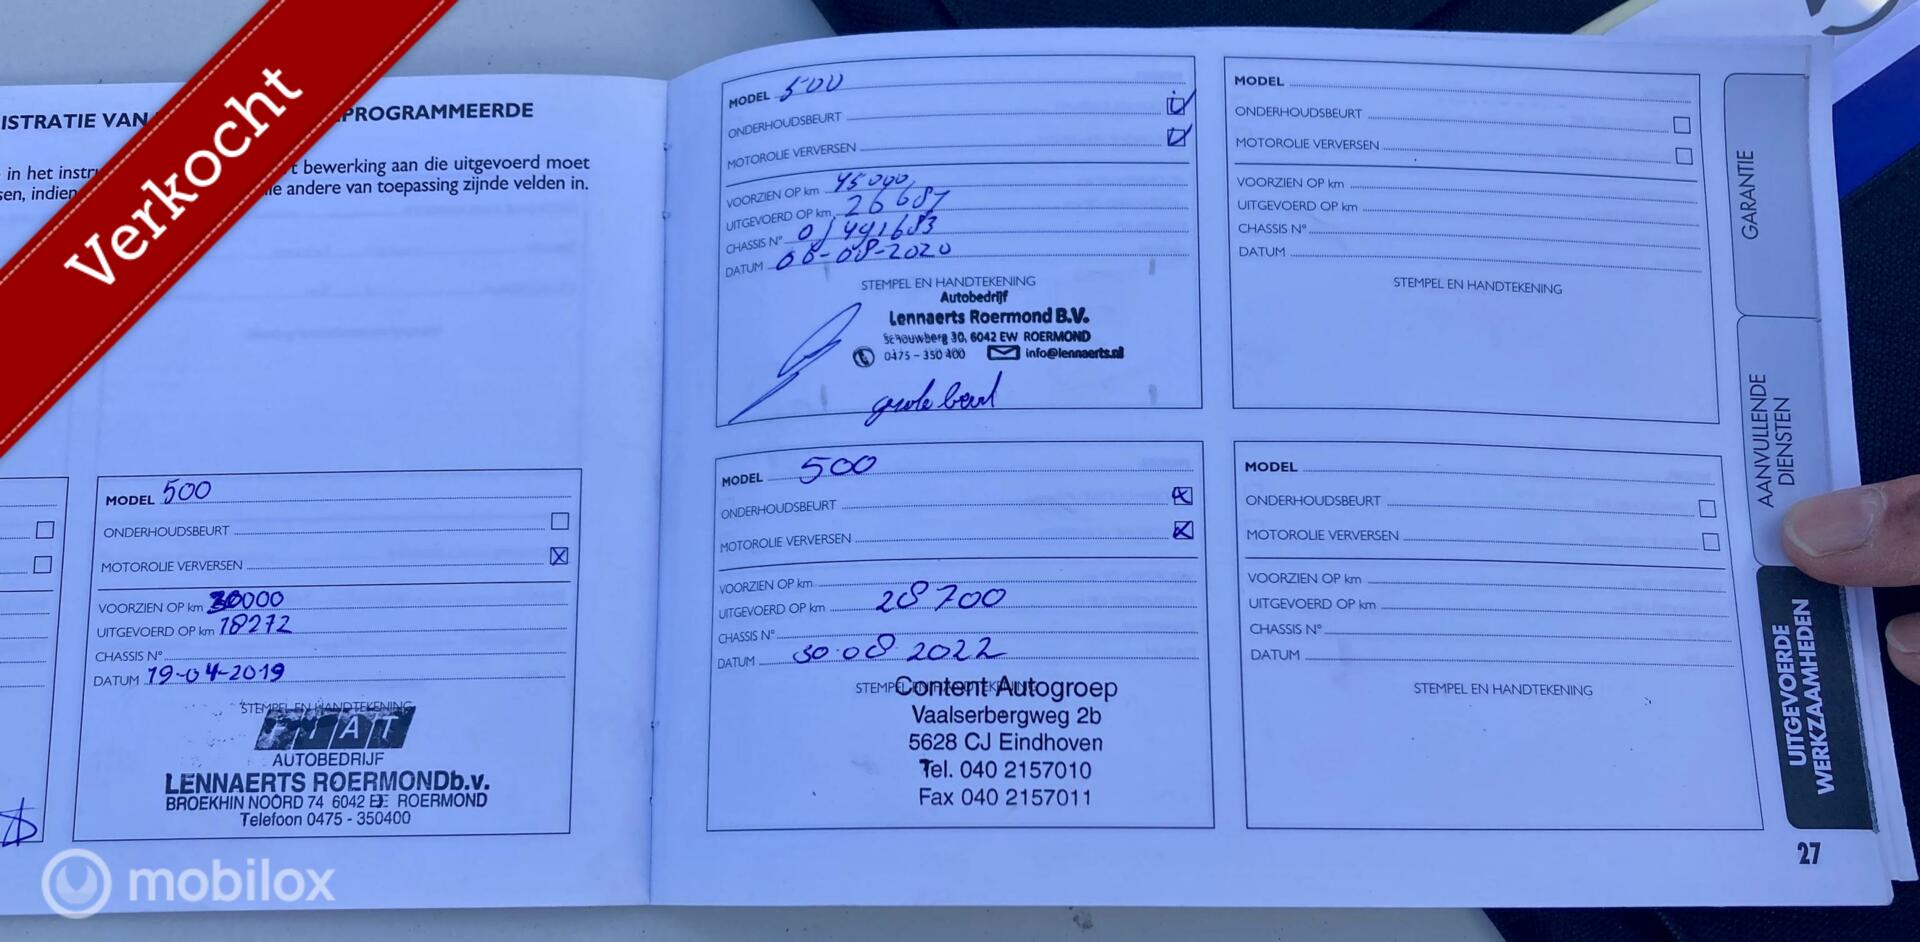 Verkocht
ISTRATIE VAN
PROGRAMMEERDE
in het instr
t bewerking aan die uitgevoerd moet
sen, indien
ie andere van toepassing zijnde velden in.
MODEL 500
ONDERHOUDSBEURT
MOTOROLIE VERVERSEN
VOORZIEN OP km 30000
UITGEVOERD OP km 18272
CHASSIS N°
DATUM 19-04-2019
STEMPEL EN HANDTEKENING
FIAT
AUTOBEDRIJF
LENNAERTS ROERMOND b.v.
BROEKHIN NOORD 74 6042 EE ROERMOND
Telefoon 0475 - 350400
MODEL 500
ONDERHOUDSBEURT
MOTOROLIE VERVERSEN
VOORZIEN OP km 45000
UITGEVOERD OP km 26687
CHASSIS N° 01441683
DATUM 06-08-2020
STEMPEL EN HANDTEKENING
Autobedrijf
Lennaerts Roermond B.V.
Schouwberg 30, 6042 EW ROERMOND
0475 - 350 400 info@lennaerts.nl
grote beurt
MODEL 500
ONDERHOUDSBEURT
MOTOROLIE VERVERSEN
VOORZIEN OP km
UITGEVOERD OP km 28700
CHASSIS N°
DATUM 30-08 2022
STEMPEL EN HANDTEKENING
Content Autogroep
Vaalserbergweg 2b
5628 CJ Eindhoven
Tel. 040 2157010
Fax 040 2157011
MODEL
ONDERHOUDSBEURT
MOTOROLIE VERVERSEN
VOORZIEN OP km
UITGEVOERD OP km
CHASSIS N°
DATUM
STEMPEL EN HANDTEKENING
MODEL
ONDERHOUDSBEURT
MOTOROLIE VERVERSEN
VOORZIEN OP km
UITGEVOERD OP km
CHASSIS N°
DATUM
STEMPEL EN HANDTEKENING
GARANTIE
AANVULLENDE
DIENSTEN
UITGEVOERDE
WERKZAAMHEDEN
27
mobilox